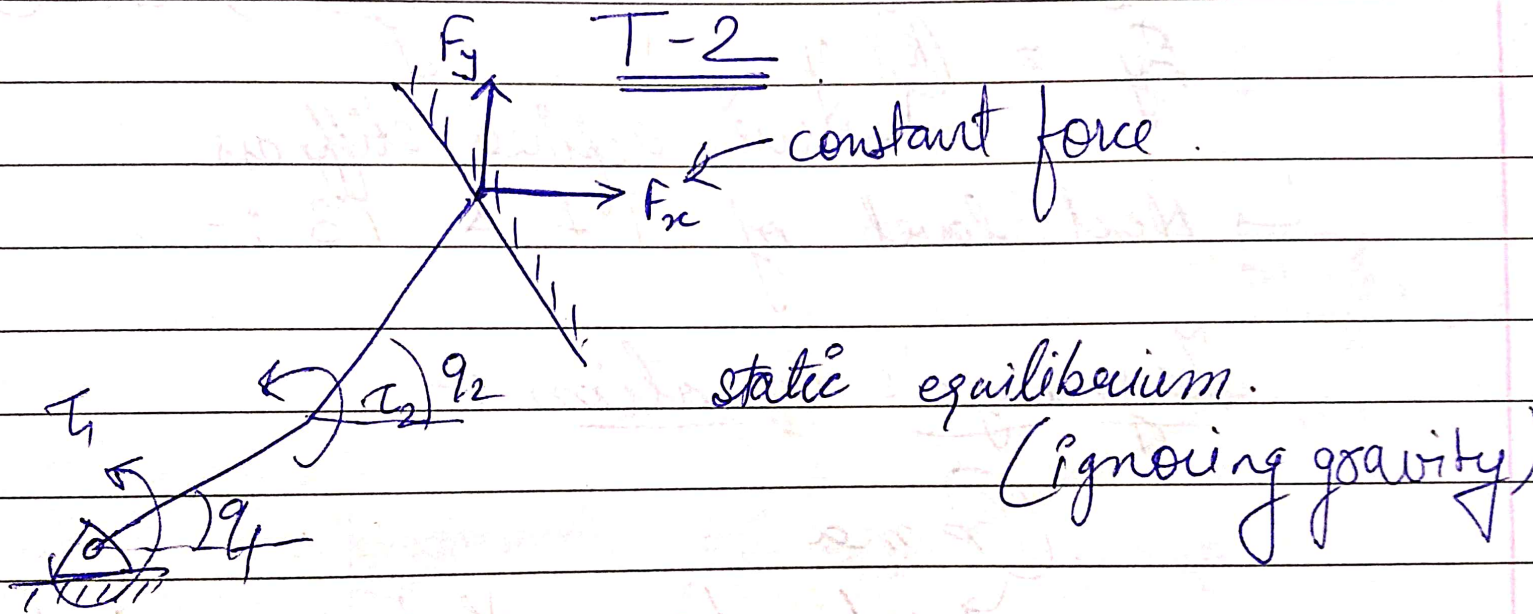 T-2
Fy
constant force.
Fx
τ2 q2
static equilibrium.
τ1
(ignoring gravity)
q1